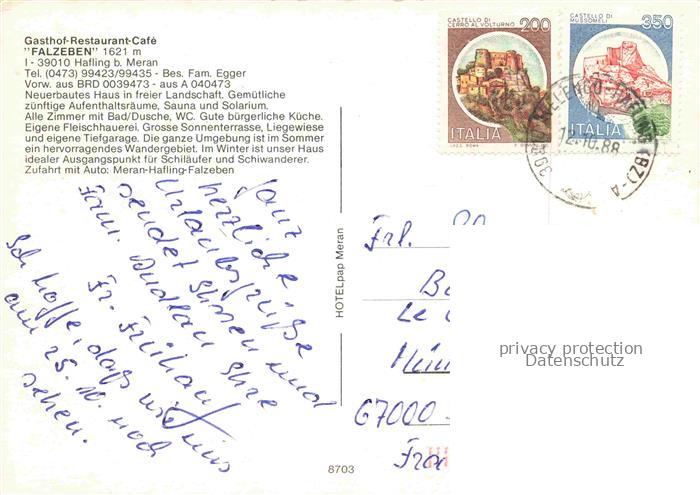 Gasthof-Restaurant-Café
"FALZEBEN" 1621 m
I - 39010 Hafling b. Meran
Tel. (0473) 99423/99435 - Bes. Fam. Egger
Vorw. aus BRD 0039473 - aus A 040473
Neuerbautes Haus in freier Landschaft. Gemütliche
zünftige Aufenthaltsräume, Sauna und Solarium.
Alle Zimmer mit Bad/Dusche, WC. Gute bürgerliche Küche.
Eigene Fleischhauerei. Grosse Sonnenterrasse, Liegewiese
und eigene Tiefgarage. Die ganze Umgebung ist im Sommer
ein hervorragendes Wandergebiet. Im Winter ist unser Haus
idealer Ausgangspunkt für Schiläufer und Schiwanderer.
Zufahrt mit Auto: Meran-Hafling-Falzeben
CASTELLO DI
CERRO AL VOLTURNO
200
ITALIA
CASTELLO DI
MUSSOMELI
350
ITALIA
12.10.88
(BZ)-A
Ganz
herzliche
Urlaubsgrüße
sendet Ihnen und
Fam. Ihre
Fr. Frühauf
Ich hoffe, dass wir uns
am 25. 10. noch
sehen.
HOTELpap Meran
Frl.
Le
67000
privacy protection
Datenschutz
8703